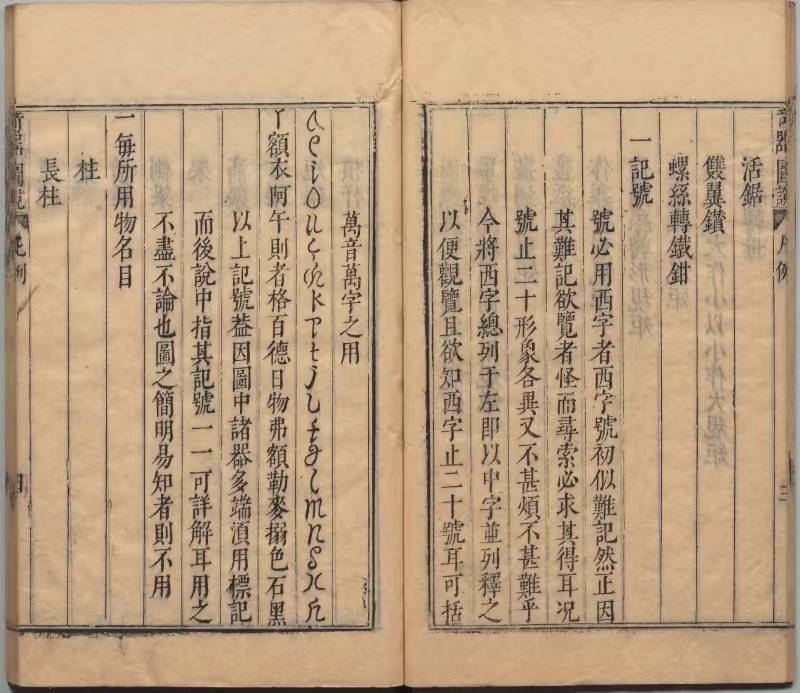 奇器圖說 凡例 三
活鋸
雙翼鑽
螺絲轉鐵鉗
一記號
號必用西字者西字號初似難記然正因
其難記欲覽者怪而尋索必求其得耳况
號止二十形象各異又不甚煩不甚難乎
今將西字總列于左即以中字並列釋之
以便觀覽且欲知西字止二十號耳可括
萬音萬字之用
a e i o u ç ch k p t j v f g l m n s x h
丫額衣阿午則者格百德日物弗額勒麥搦色石黑
以上記號葢因圖中諸器多端湏用標記
而後說中指其記號一一可詳解耳用之
不盡不論也圖之簡明易知者則不用
一每所用物名目
柱
長柱
奇器圖說 凡例 四